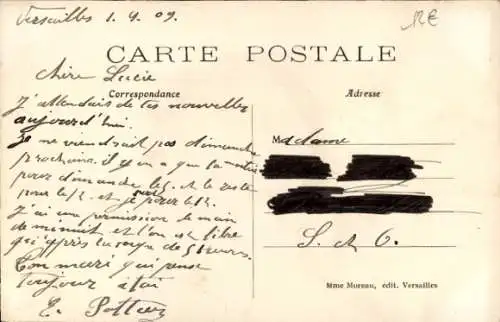 Versailles 1.4.09.
12E
CARTE POSTALE
Chère Lucie
Correspondance
Adresse
J'attendais de tes nouvelles
aujourd'hui.
Je ne viendrait pas dimanche
prochain. il y en a que la moitié
pour dimanche et le reste
pour le 12. et je pour le 12.
J'ai une permission de
de minuit et l'on est libre
qu'après la soupe de 5 heures.
Ton mari qui pense
toujours à toi
E. Pottier
Madame
S. et O.
Mme Moreau, édit. Versailles